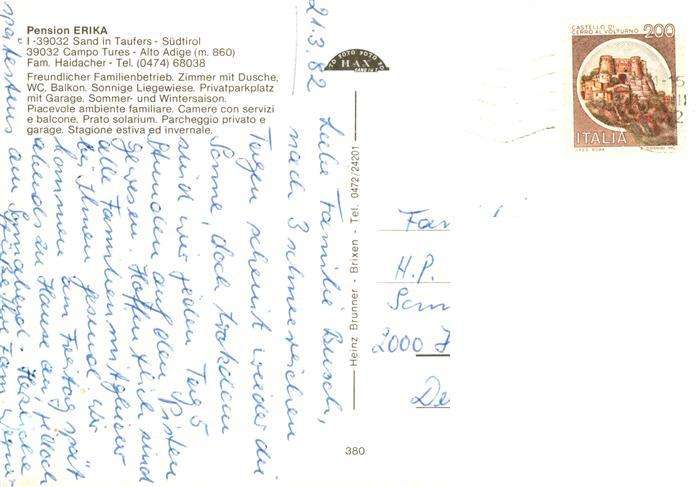 Pension ERIKA
I-39032 Sand in Taufers - Südtirol
39032 Campo Tures - Alto Adige (m. 860)
Fam. Haidacher - Tel. (0474) 68038
Freundlicher Familienbetrieb. Zimmer mit Dusche,
WC, Balkon. Sonnige Liegewiese. Privatparkplatz
mit Garage. Sommer- und Wintersaison.
Piacevole ambiente familiare. Camere con servizi
e balcone. Prato solarium. Parcheggio privato e
garage. Stagione estiva ed invernale.
21.3.82
Liebe Familie Busch,
nach 3 schneereichen
Tagen scheint wieder die
Sonne, doch trotzdem
sind wir jeden Tag 5
Stunden auf den Pisten
gewesen. Hoffentlich sind
alle Familienmitglieder
bei Ihnen gesund. Wir
kommen am Freitag spät
abends zu Hause an, jedoch
spätestens am Sonnabend. Herzliche
Grüße Ihre Fam.
FOTO HAX
Heinz Brunner - Brixen - Tel. 0472/24201
380
CASTELLO DI
CERRO AL VOLTURNO
200
ITALIA
Fam
H.P.
2000
De